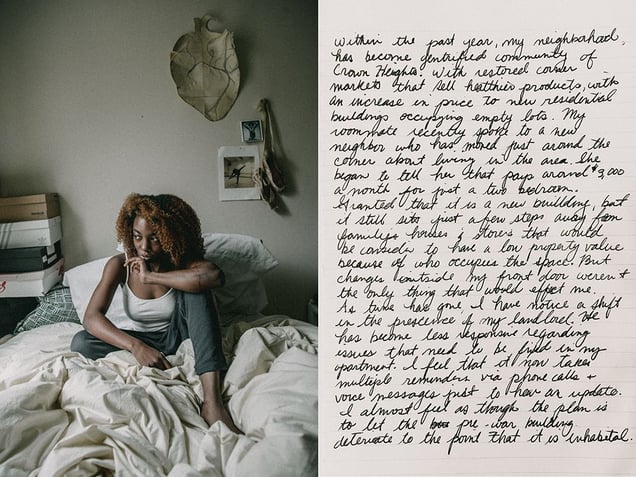 Within the past year, my neighborhood,
has become gentrified community of
Crown Heights. With restored corner
markets that sell healthier products, with
an increase in price to new residential
buildings occupying empty lots. My
roommate recently spoke to a new
neighbor who has moved just around the
corner about living in the area. She
began to tell her that pays around $3,000
a month for just a two bedroom.
Granted that it is a new building, but
it still sits just a few steps away from
families houses & stores that would
be consider to have a low property value
because of who occupies the space. But
changes outside my front door weren't
the only thing that would effect me.
As time has gone I have notice a shift
in the prescence of my landlord. He
has become less responsive regarding
issues that need to be fixed in my
apartment. I feel that it now takes
multiple reminders via phone calls +
voice messages just to hear an update.
I almost feel as though the plan is
to let the pre-war building
deteriate to the point that it is inhabital.